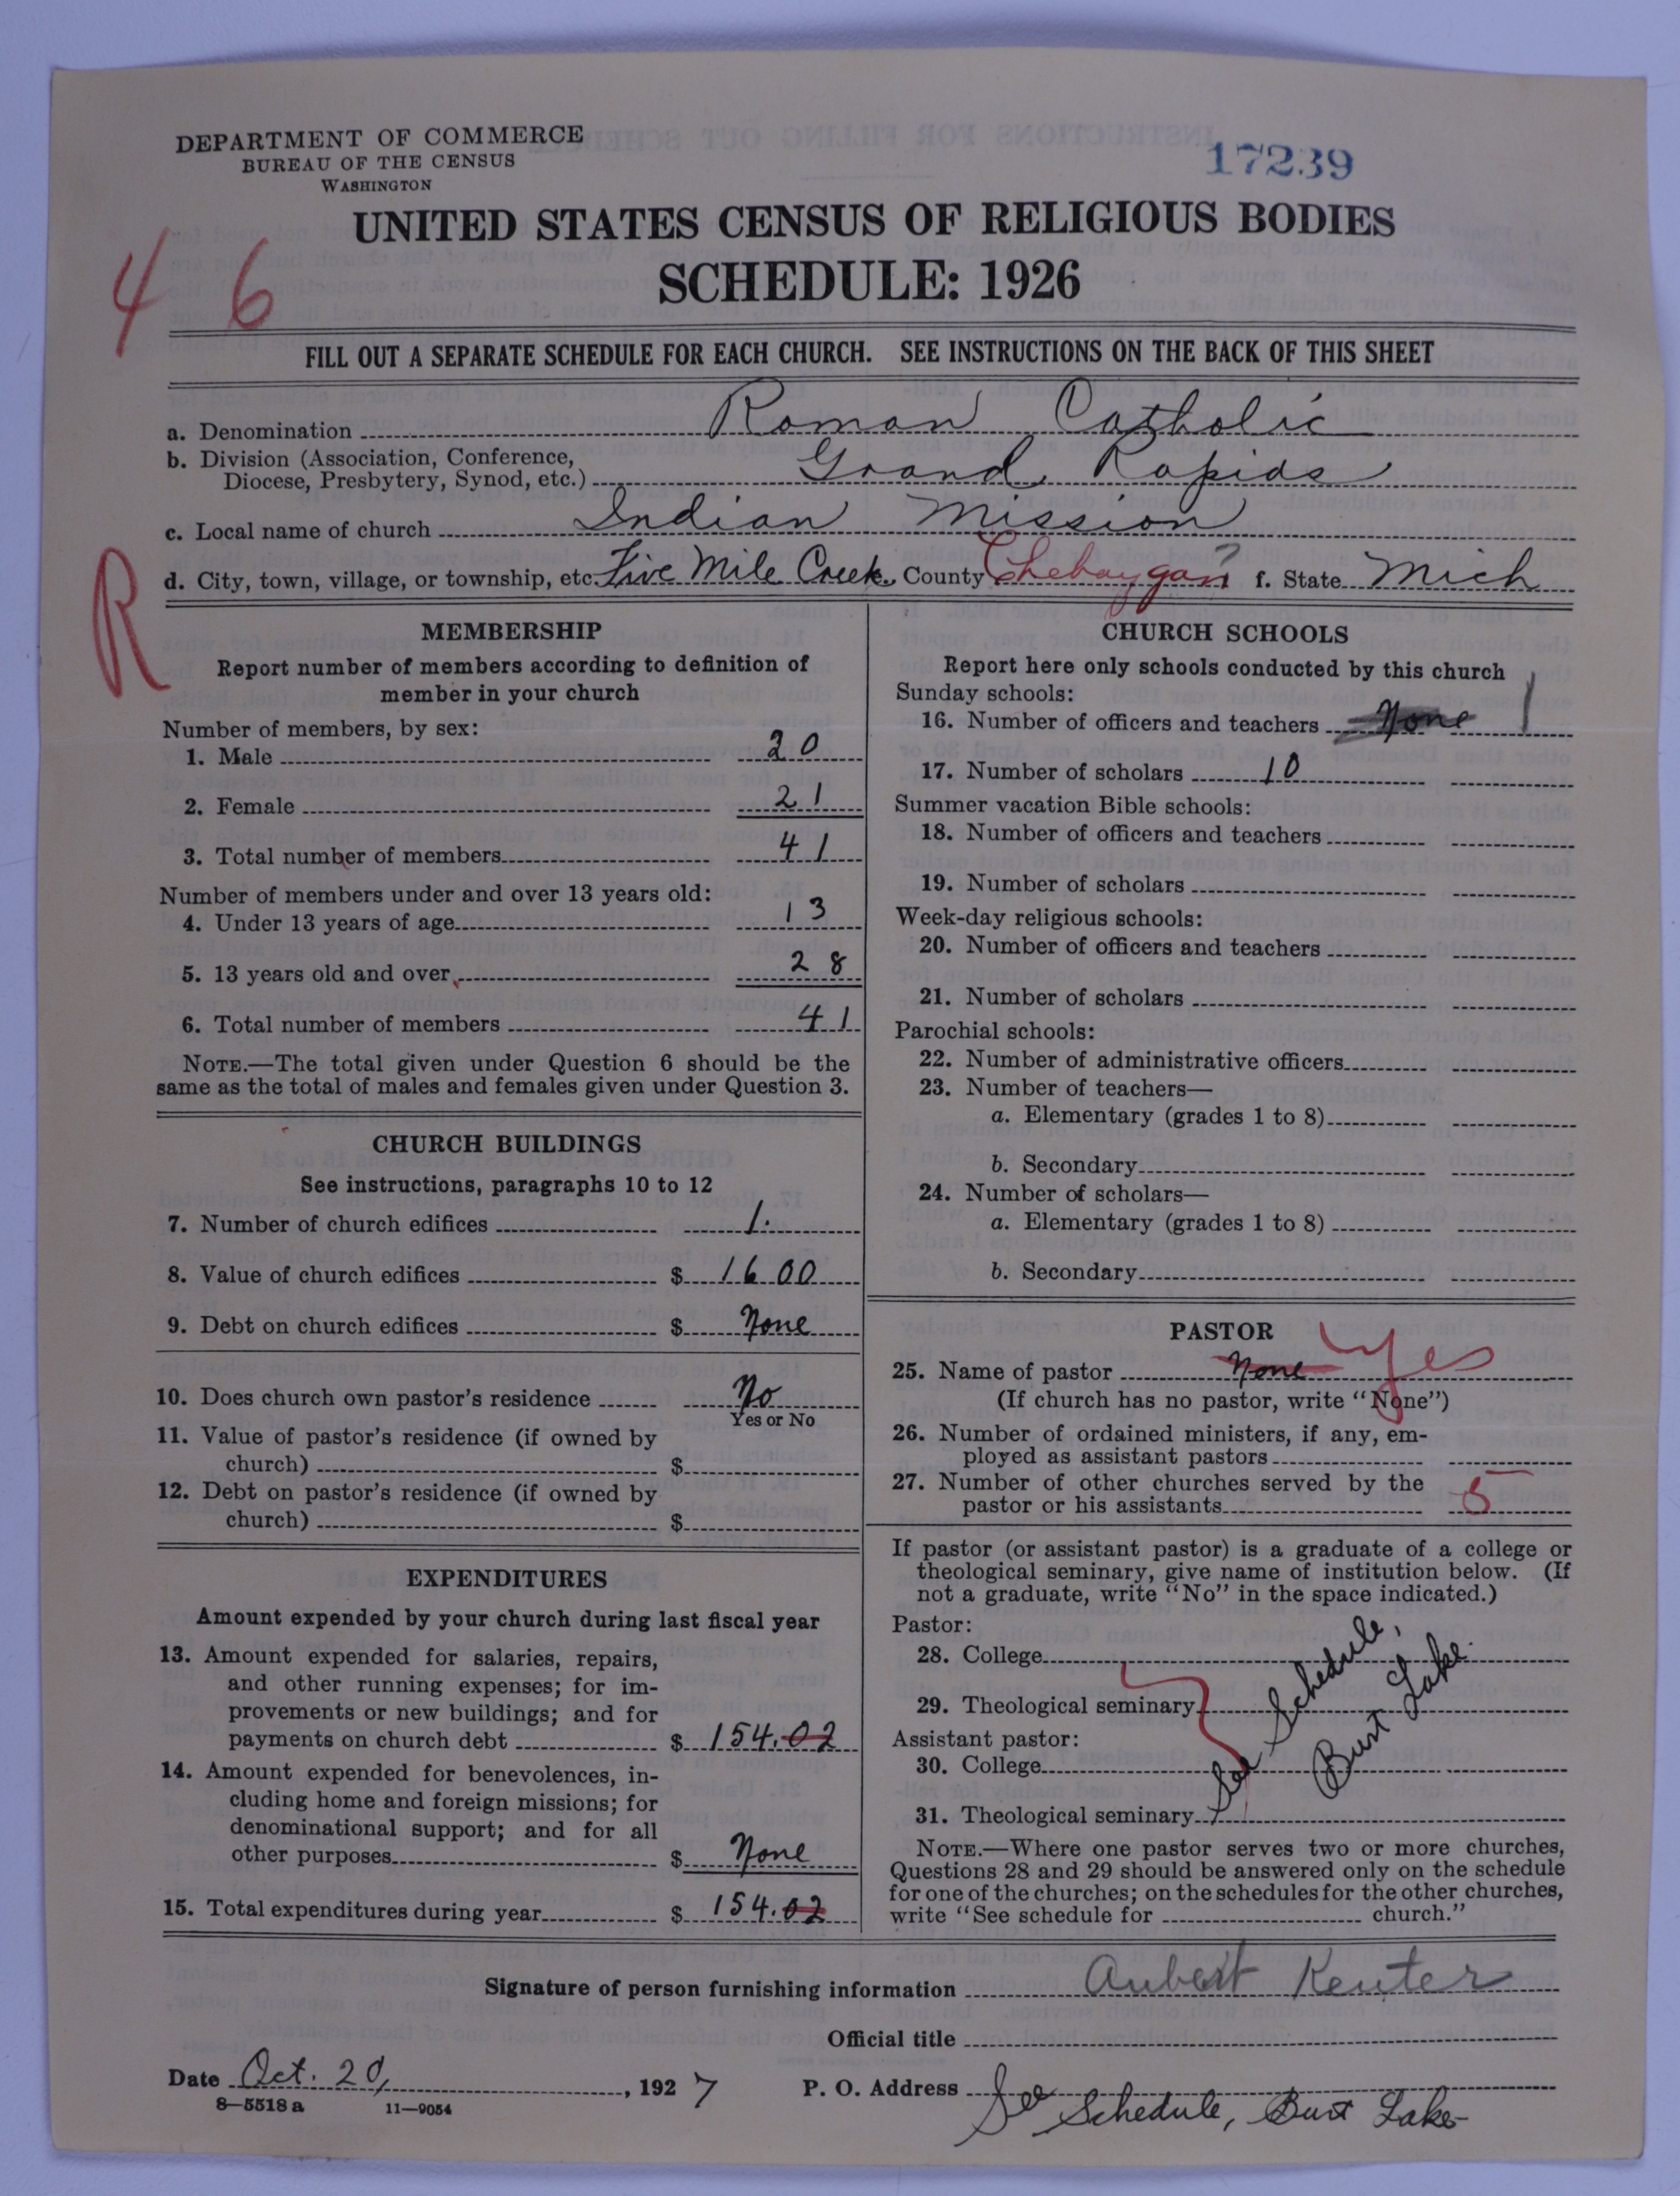 DEPARTMENT OF COMMERCE
BUREAU OF THE CENSUS
WASHINGTON
17239
UNITED STATES CENSUS OF RELIGIOUS BODIES
SCHEDULE: 1926
4 6
FILL OUT A SEPARATE SCHEDULE FOR EACH CHURCH. SEE INSTRUCTIONS ON THE BACK OF THIS SHEET
a. Denomination Roman Catholic
b. Division (Association, Conference,
Diocese, Presbytery, Synod, etc.) Grand Rapids
c. Local name of church Indian Mission
d. City, town, village, or township, etc. Five Mile Creek, County Cheboygan ? f. State Mich
R
MEMBERSHIP
Report number of members according to definition of
member in your church
Number of members, by sex:
1. Male 20
2. Female 21
3. Total number of members 41
Number of members under and over 13 years old:
4. Under 13 years of age 13
5. 13 years old and over 28
6. Total number of members 41
NOTE.—The total given under Question 6 should be the
same as the total of males and females given under Question 3.
CHURCH BUILDINGS
See instructions, paragraphs 10 to 12
7. Number of church edifices 1.
8. Value of church edifices $ 1600
9. Debt on church edifices $ None
10. Does church own pastor's residence No
Yes or No
11. Value of pastor's residence (if owned by
church) $
12. Debt on pastor's residence (if owned by
church) $
EXPENDITURES
Amount expended by your church during last fiscal year
13. Amount expended for salaries, repairs,
and other running expenses; for im-
provements or new buildings; and for
payments on church debt $ 154.02
14. Amount expended for benevolences, in-
cluding home and foreign missions; for
denominational support; and for all
other purposes $ None
15. Total expenditures during year $ 154.02
CHURCH SCHOOLS
Report here only schools conducted by this church
Sunday schools:
16. Number of officers and teachers None 1
17. Number of scholars 10
Summer vacation Bible schools:
18. Number of officers and teachers
19. Number of scholars
Week-day religious schools:
20. Number of officers and teachers
21. Number of scholars
Parochial schools:
22. Number of administrative officers
23. Number of teachers—
a. Elementary (grades 1 to 8)
b. Secondary
24. Number of scholars—
a. Elementary (grades 1 to 8)
b. Secondary
PASTOR
25. Name of pastor None Yes
(If church has no pastor, write "None")
26. Number of ordained ministers, if any, em-
ployed as assistant pastors
27. Number of other churches served by the
pastor or his assistants 5
If pastor (or assistant pastor) is a graduate of a college or
theological seminary, give name of institution below. (If
not a graduate, write "No" in the space indicated.)
Pastor:
28. College
29. Theological seminary
Assistant pastor:
30. College
31. Theological seminary
See Schedule,
Burt Lake.
NOTE.—Where one pastor serves two or more churches,
Questions 28 and 29 should be answered only on the schedule
for one of the churches; on the schedules for the other churches,
write "See schedule for church."
Signature of person furnishing information Aubert Keuter
Official title
Date Oct. 20, , 1927 P. O. Address See Schedule, Burt Lake
8—5518 a 11—9054